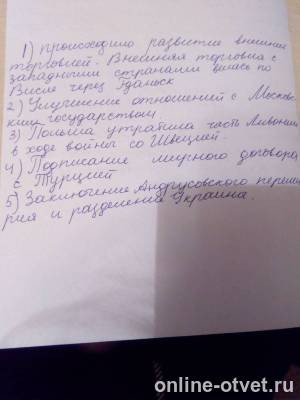 1) происходило развитие внешней
торговлей. Внешняя торговля с
западными странами велась по
Висле через Гданьск
2) Улучшение отношений с Москов-
ским государством
3) Польша утратила часть Ливонии
в ходе войны со Швецией.
4) Подписание мирного договора
с Турцией
5) Заключение Андрусовского переми-
рия и разделения Украина.
online-otvet.ru